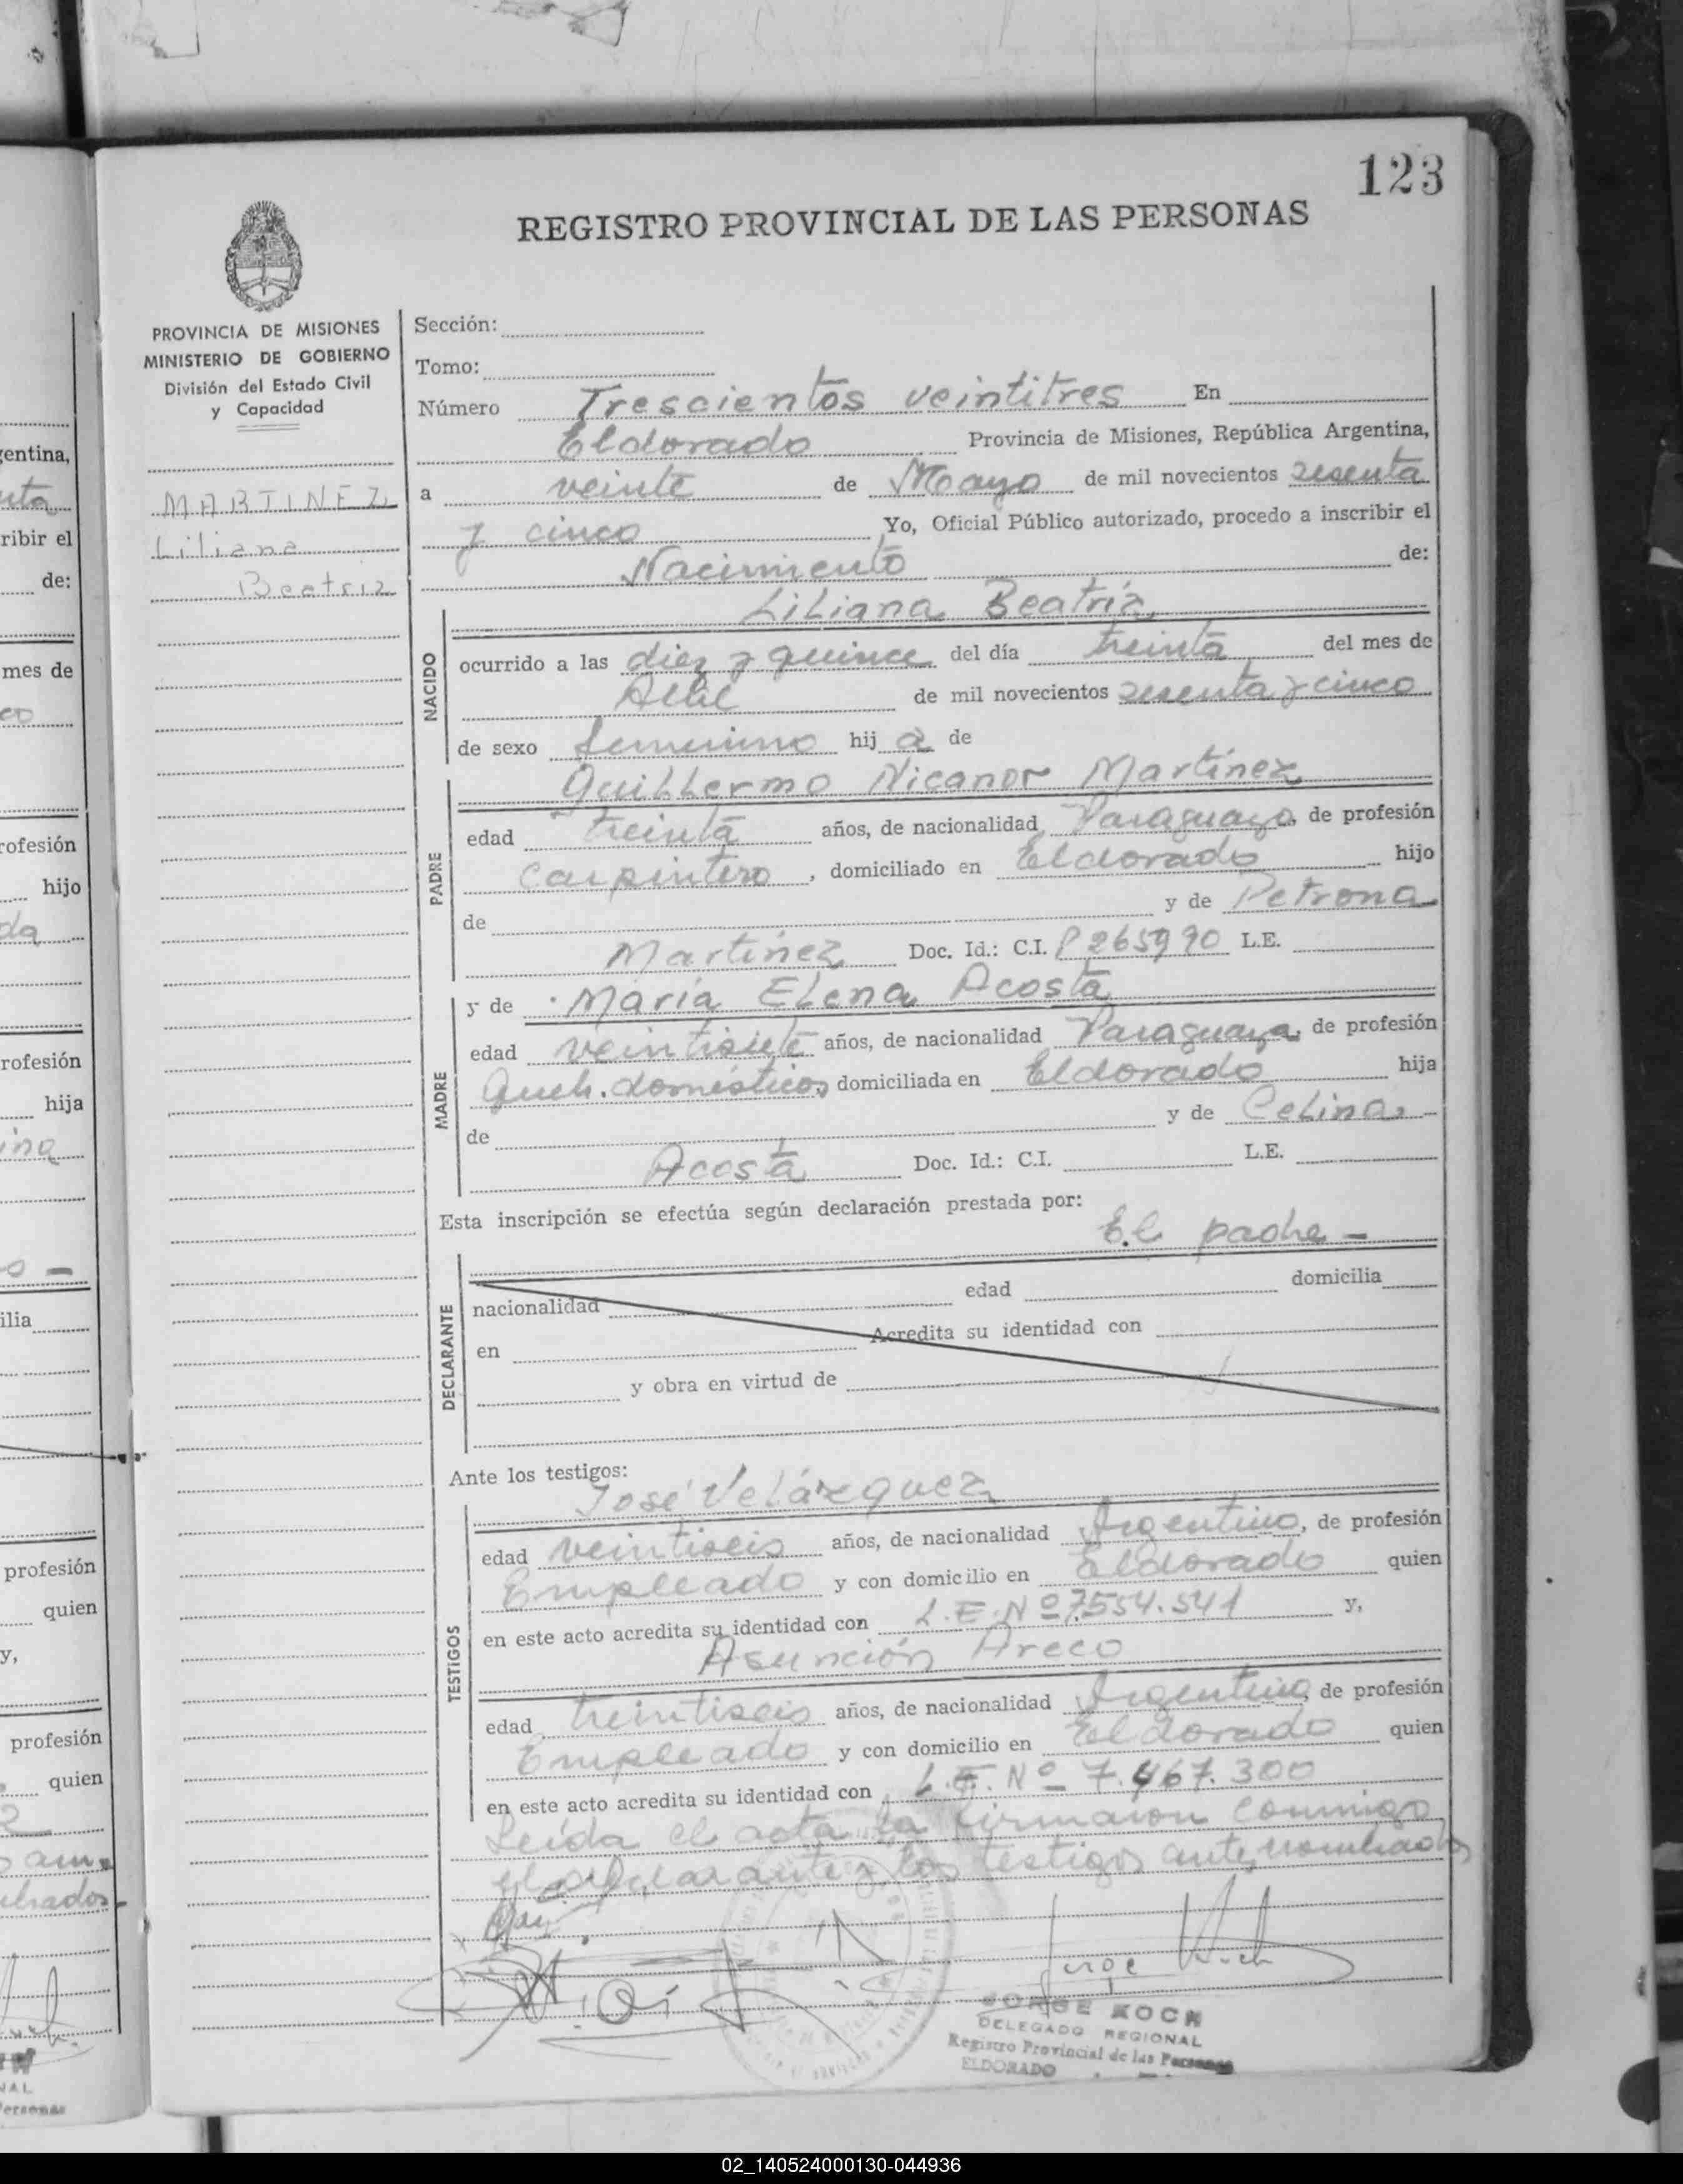 123
REGISTRO PROVINCIAL DE LAS PERSONAS
PROVINCIA DE MISIONES
MINISTERIO DE GOBIERNO
División del Estado Civil
y Capacidad
MARTINEZ
Liliana
Beatriz
Sección:
Tomo:
Número Trescientos veintitres En
Eldorado Provincia de Misiones, República Argentina,
a veinte de Mayo de mil novecientos sesenta
y cinco Yo, Oficial Público autorizado, procedo a inscribir el
Nacimiento de:
Liliana Beatriz
NACIDO
ocurrido a las diez y quince del día treinta del mes de
Abril de mil novecientos sesenta y cinco
de sexo femenino hij a de
Guillermo Nicanor Martínez
PADRE
edad treinta años, de nacionalidad Paraguayo, de profesión
Carpintero, domiciliado en Eldorado hijo
de y de Petrona
Martínez Doc. Id.: C.I. P265990 L.E.
MADRE
y de María Elena Acosta
edad veintisiete años, de nacionalidad Paraguaya, de profesión
Queh. domésticos domiciliada en Eldorado hija
de y de Celina
Acosta Doc. Id.: C.I. L.E.
Esta inscripción se efectúa según declaración prestada por:
El padre -
DECLARANTE
nacionalidad edad domicilia
en Acredita su identidad con
y obra en virtud de
Ante los testigos:
José Velázquez
TESTIGOS
edad veintiseis años, de nacionalidad Argentino, de profesión
Empleado y con domicilio en Eldorado quien
en este acto acredita su identidad con L.E. Nº 7.554.541 y,
Asunción Areco
edad treintiseis años, de nacionalidad Argentino, de profesión
Empleado y con domicilio en Eldorado quien
en este acto acredita su identidad con L.E. Nº 7.467.300
Leída el acta la firmaron conmigo
el declarante y los testigos ante nombrados
Jorge Koch
JORGE KOCH
DELEGADO REGIONAL
Registro Provincial de las Personas
ELDORADO
entina,
ribir el
de:
mes de
rofesión
hijo
da
rofesión
hija
ina
ilia
profesión
quien
y,
profesión
quien
02_140524000130-044936